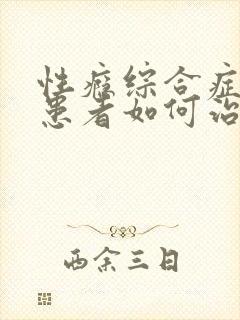 性瘾综合症
患者如何治
西余三日